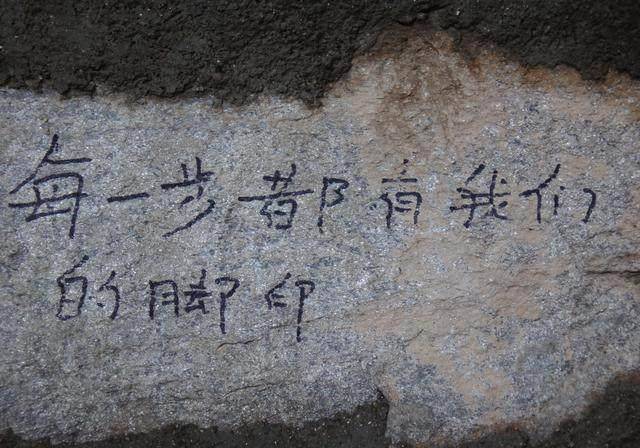 每一步都有我们
的脚印